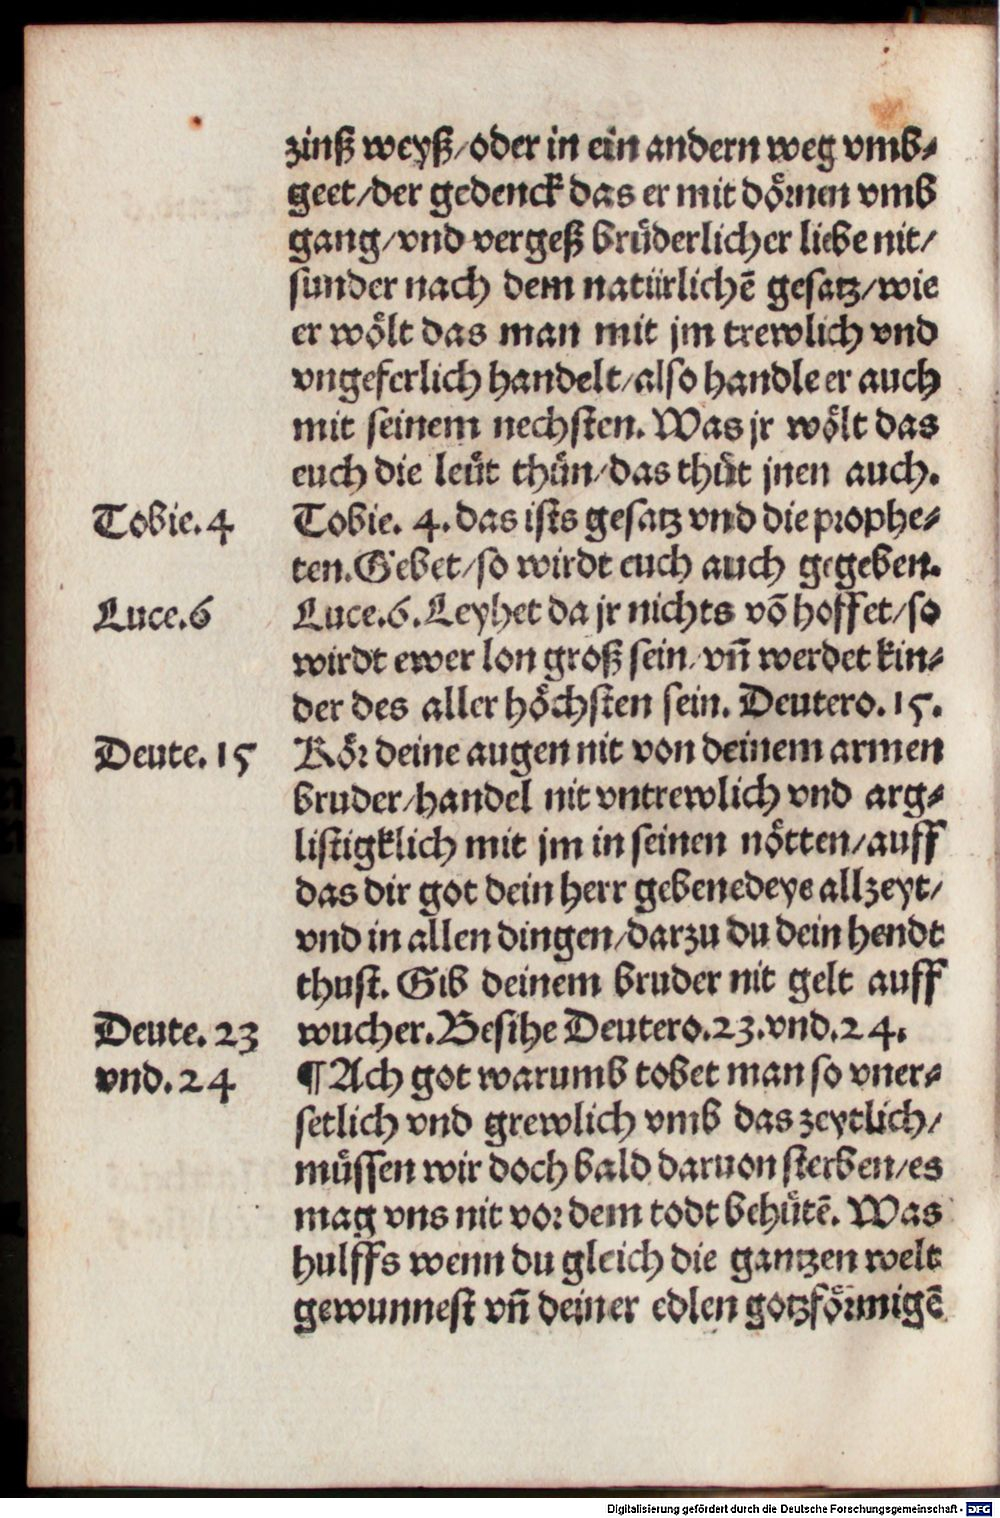 zinß weyß/oder in ein andern weg vmb⸗
geet/der gedenck das er mit dörnen vmb
gang/vnd vergeß brüderlicher liebe nit/
sunder nach dem natürlichē gesatz/wie
er wölt das man mit jm trewlich vnd
vngeferlich handelt/also handle er auch
mit seinem nechsten. Was jr wölt das
euch die leüt thün/das thüt jnen auch.
Tobie. 4 Tobie. 4. das ists gesatz vnd die prophe⸗
ten. Gebet/so wirdt euch auch gegeben.
Luce. 6 Luce. 6. Leyhet da jr nichts vō hoffet/so
wirdt ewer lon groß sein/vn̄ werdet kin⸗
der des aller höchsten sein. Deutero. 15.
Deute. 15 Kör deine augen nit von deinem armen
bruder/handel nit vntrewlich vnd arg⸗
listigklich mit jm in seinen nötten/auff
das dir got dein herr gebenedeye allzeyt/
vnd in allen dingen/darzu du dein hendt
thust. Gib deinem bruder nit gelt auff
Deute. 23 wucher. Besihe Deutero. 23. vnd. 24.
vnd. 24 ¶ Ach got warumb tobet man so vner⸗
setlich vnd grewlich vmb das zeytlich/
müssen wir doch bald daruon sterben/es
mag vns nit vor dem todt behütē. Was
hulffs wenn du gleich die gantzen welt
gewunnest vn̄ deiner edlen gotzförmigē
Digitalisierung gefördert durch die Deutsche Forschungsgemeinschaft - DFG